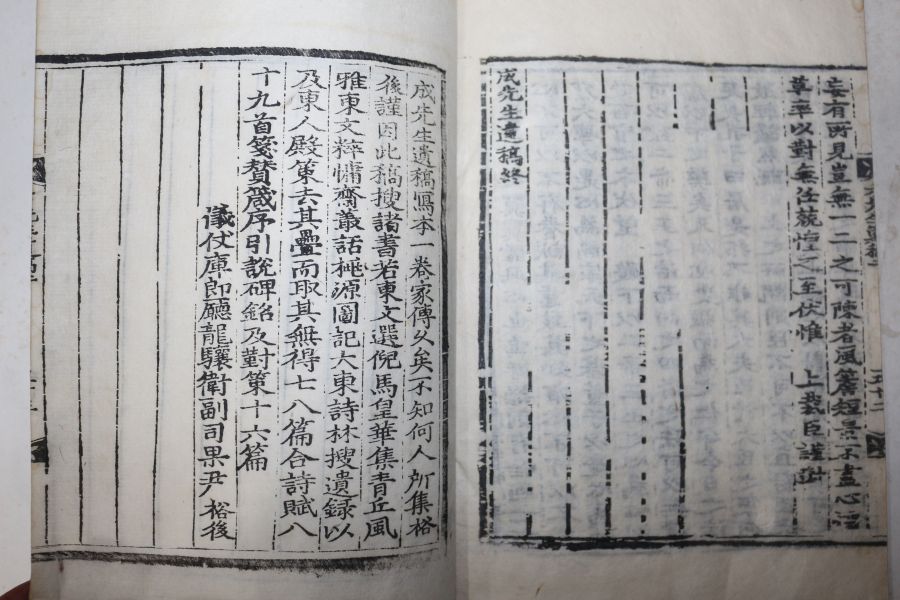 妄有所見豈無一二之可陳者風簷短景不盡心
草率以對無任兢惶之至伏惟 上裁臣謹對
成先生遺稿終
成先生遺稿寫本一卷家傳久矣不知何人所集裕
後謹因此稿搜諸書若東文選倪馬皇華集青丘風
雅東文粹慵齋叢話桃源圖記大東詩林搜遺錄以
及東人殿策去其疊而取其無得七八篇合詩賦八
十九首箋贊箴序引說碑銘及對策十六篇
儀仗庫郎廳龍驤衛副司果尹 裕後